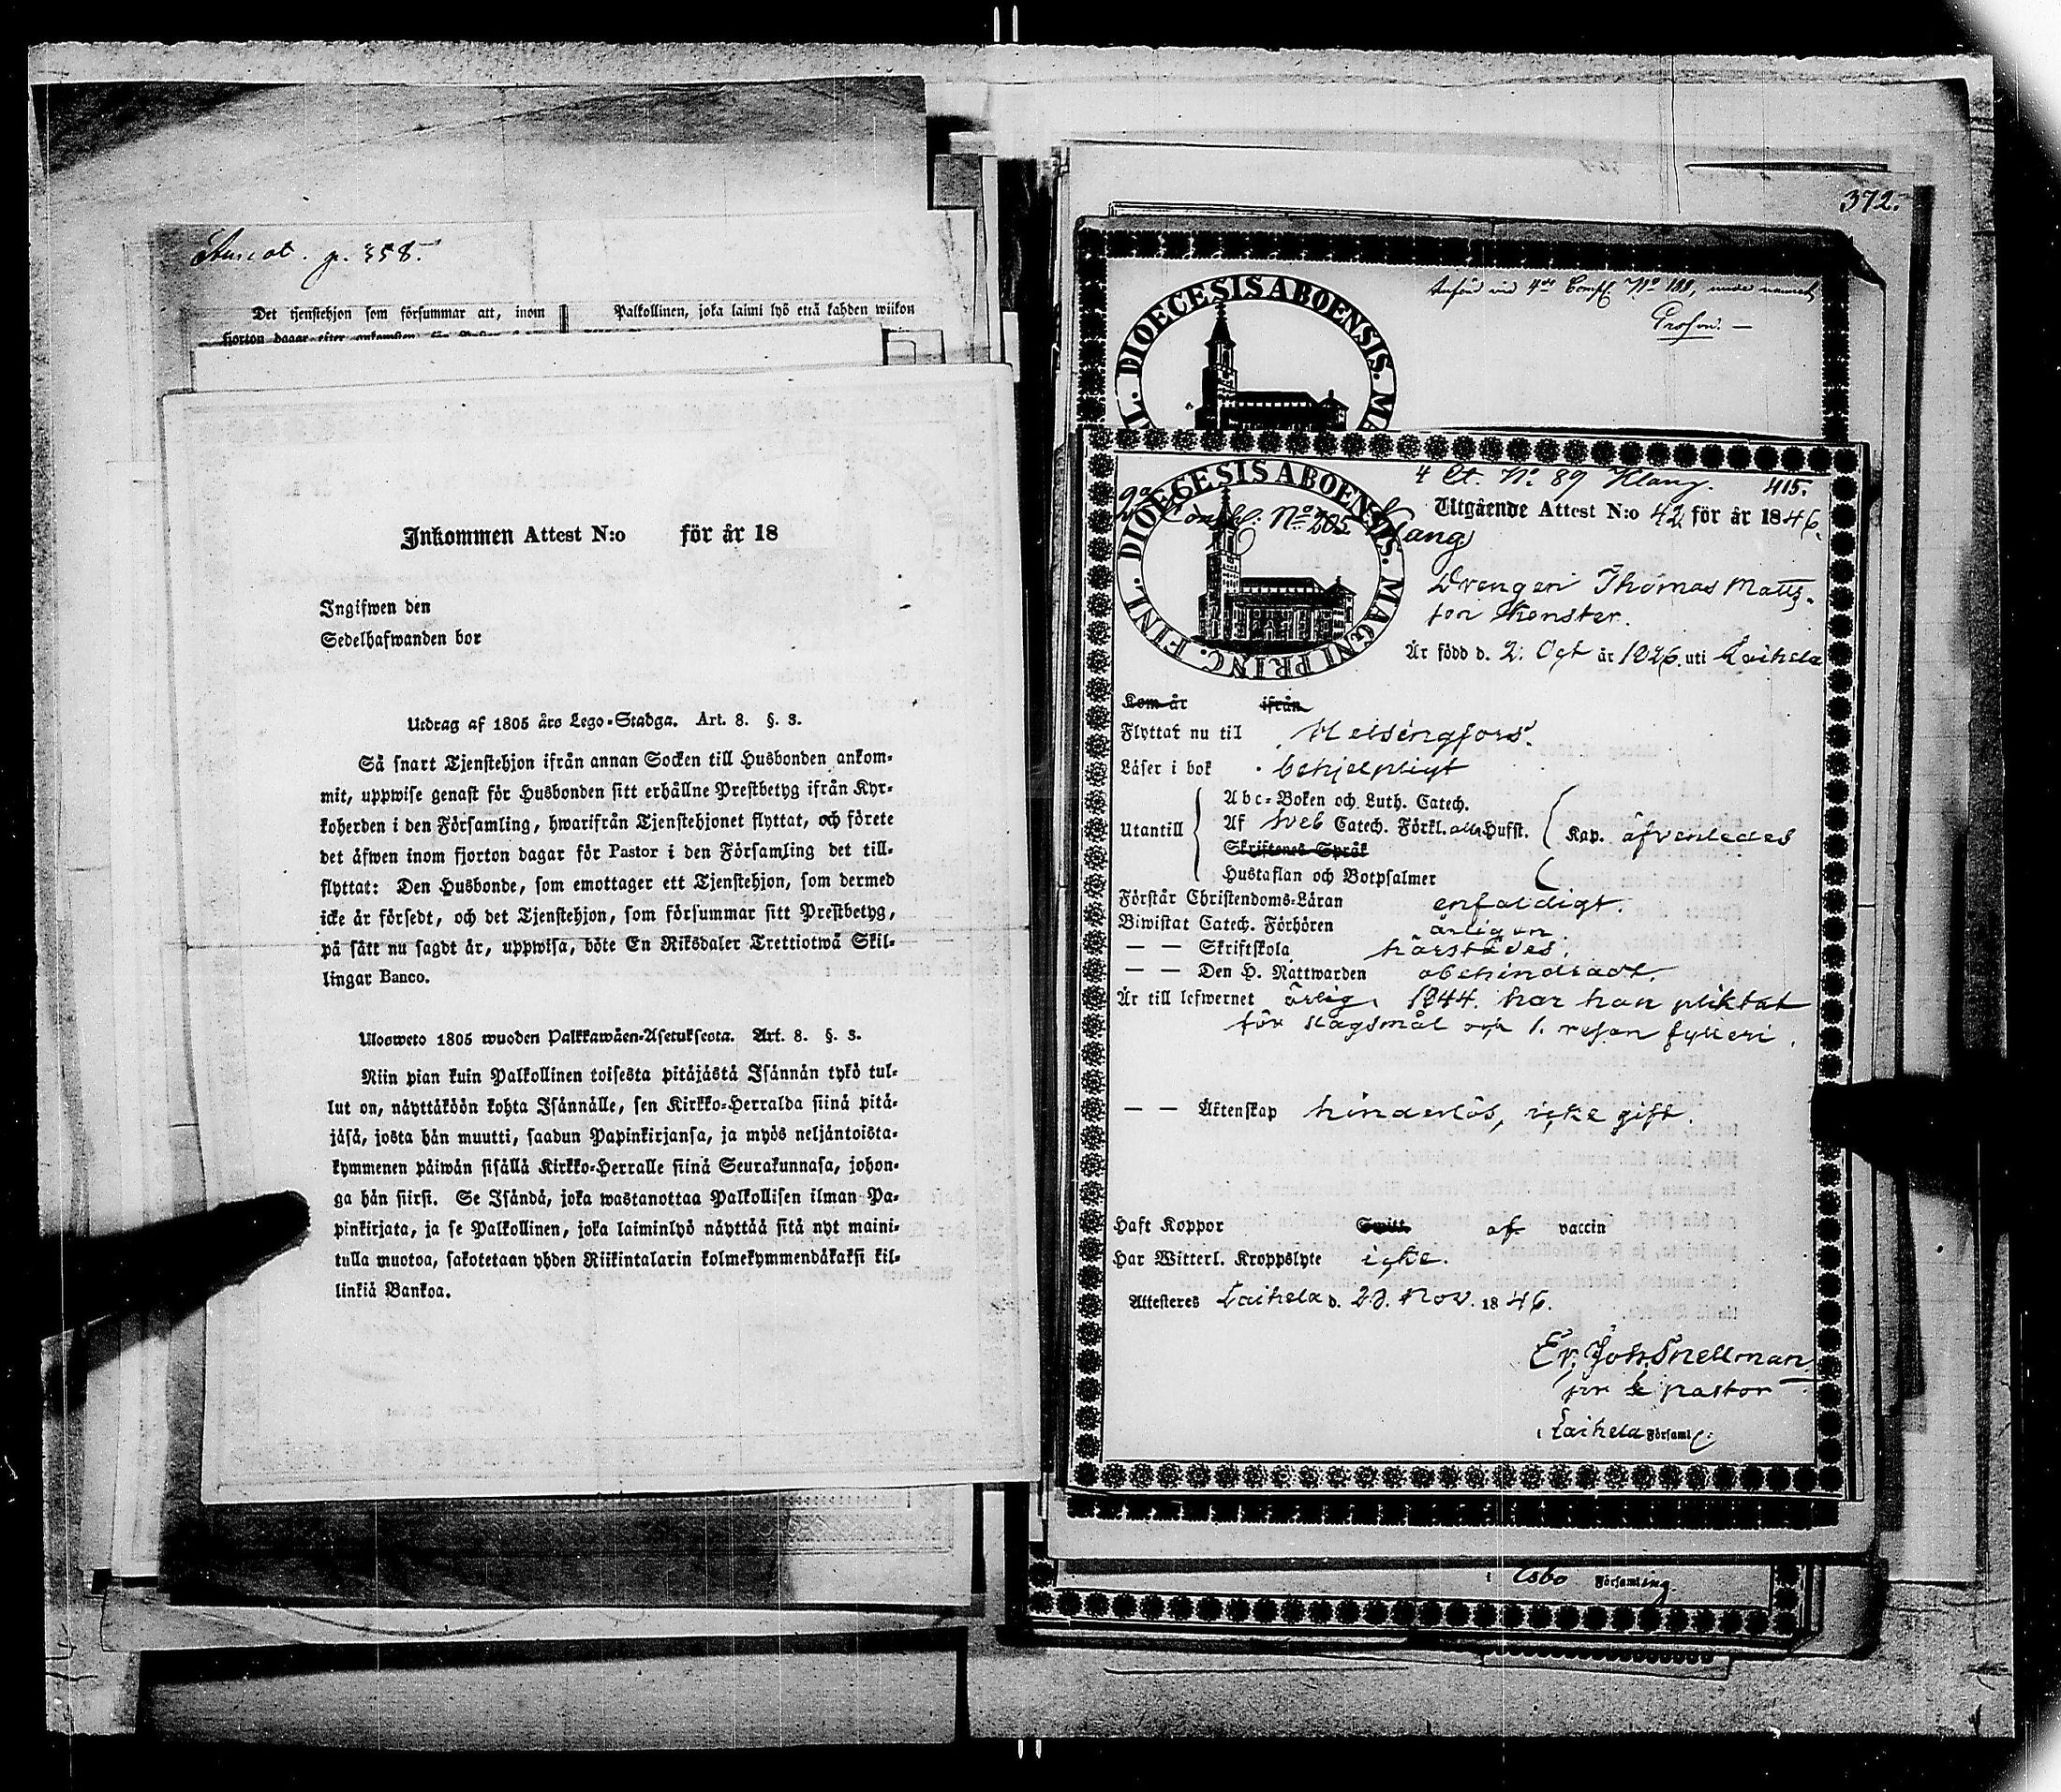 p. 358.
Det tjenstehjon som försummar att, inom
fjorton dagar efter
Palkollinen, joka laimi lyö että kahden wiikon
Inkommen Attest N:o för år 18
Ingifwen den
Sedelhafwanden bor
Utdrag af 1805 års Lego-Stadga. Art. 8. §. 3.
Så snart Tjenstehjon ifrån annan Socken till Husbonden ankom-
mit, uppwise genast för Husbonden sitt erhållne Prestbetyg ifrån Kyr-
koherden i den Församling, hwarifrån Tjenstehjonet flyttat, och förete
det äfwen inom fjorton dagar för Pastor i den Församling det till-
flyttat: Den Husbonde, som emottager ett Tjenstehjon, som dermed
icke är försedt, och det Tjenstehjon, som försummar sitt Prestbetyg,
på sätt nu sagdt är, uppwisa, böte En Riksdaler Trettiotwå Skil-
lingar Banco.
Ulosweto 1805 wuoden Palkkawäen-Asetuksesta. Art. 8. §. 3.
Niin pian kuin Palkollinen toisesta pitäjästä Isännän tykö tul-
lut on, näyttäköön kohta Isännälle, sen Kirkko-Herralda siinä pitä-
jäsä, josta hän muutti, saadun Papinkirjansa, ja myös neljäntoista-
kymmenen päiwän sisällä Kirkko-Herralle siinä Seurakunnasa, johon-
ga hän siirsi. Se Isändä, joka wastanottaa Palkollisen ilman Pa-
pinkirjata, ja se Palkollinen, joka laiminlyö näyttää sitä nyt maini-
tulla muotoa, sakotetaan yhden Riikintalarin kolmekymmendäkaksi kil-
linkiä Bankoa.
372.
DIOECESIS ABOENSIS. MA
4 Ct. No 89 Klang. 415.
Consc: No 205 Klang
DIOECESIS ABOENSIS. MAGNI PRINC. FINL.
Utgående Attest N:o 42 för år 1846.
Drengen Thomas Matts-
son
Är född d. 2. Oct år 1826. uti Laihela
Kom år ifrån
Flyttat nu til Helsingfors.
Läser i bok behjelpligt
Utantill
Abc-Boken och Luth. Catech.
Af Sveb Catech. Förkl. alla Hufst.
Kap. äfvenledes
Skriftenes Språk
Hustaflan och Botpsalmer
Förstår Christendoms-Läran enfaldigt.
Biwistat Catech. Förhören årligen.
— — Skriftskola härstädes.
— — Den H. Nattwarden obehindradt.
Är till lefwernet ärlig. 1844. har han pliktat
för slagsmål och 1. resan fylleri.
— — Äktenskap hinderlös, icke gift.
Haft Koppor Smitt. af vaccin
Har Witterl. Kroppslyte icke.
Attesteres Laihela d. 23. Nov. 1846.
Er. Joh. Snellman
pastor
i Laihela Församl
i Esbo Församling.